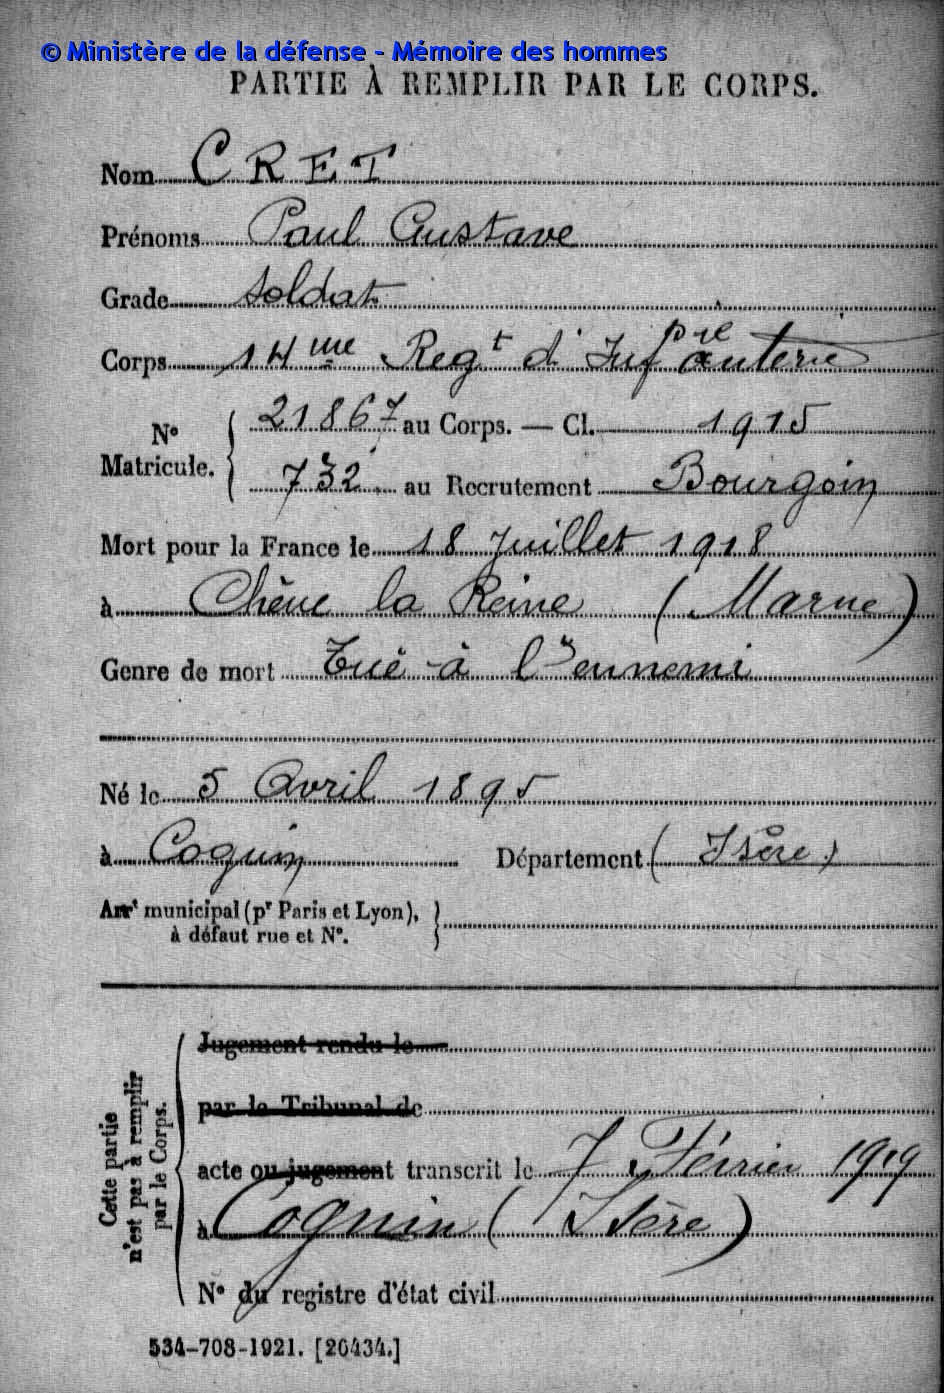 © Ministère de la défense - Mémoire des hommes
PARTIE À REMPLIR PAR LE CORPS.
Nom CRET
Prénoms Paul Gustave
Grade Soldat
Corps 14me Regt d'Infanterie
N° Matricule. 21867 au Corps. — Cl. 1915
732 au Recrutement Bourgoin
Mort pour la France le 18 Juillet 1918
à Chêne la Reine (Marne)
Genre de mort Tué à l'ennemi
Né le 5 Avril 1895
à Cognin Département (Isère)
Arrt municipal (pr Paris et Lyon),
à défaut rue et N°.
Cette partie n'est pas à remplir par le Corps.
Jugement rendu le
par le Tribunal de
acte ou jugement transcrit le 7 Février 1919
à Cognin (Isère)
N° du registre d'état civil
534-708-1921. [26434.]